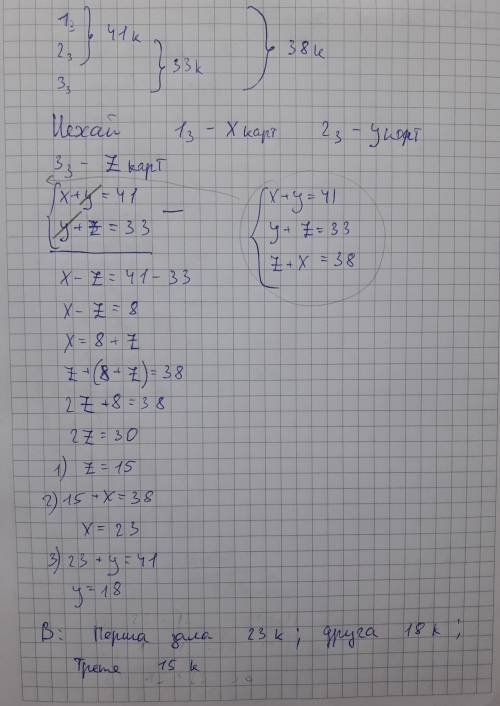 1з } 41к
2з } 33к } 38к
3з
Нехай 1з - x карт 2з - y карт
3з - z карт
x+y=41 x+y=41
y+z=33 y+z=33
x-z=41-33 z+x=38
x-z=8
x=8+z
z+(8+z)=38
2z+8=38
2z=30
1) z=15
2) 15+x=38
x=23
3) 23+y=41
y=18
В: Перша зала 23к; друга 18к;
Третя 15 к